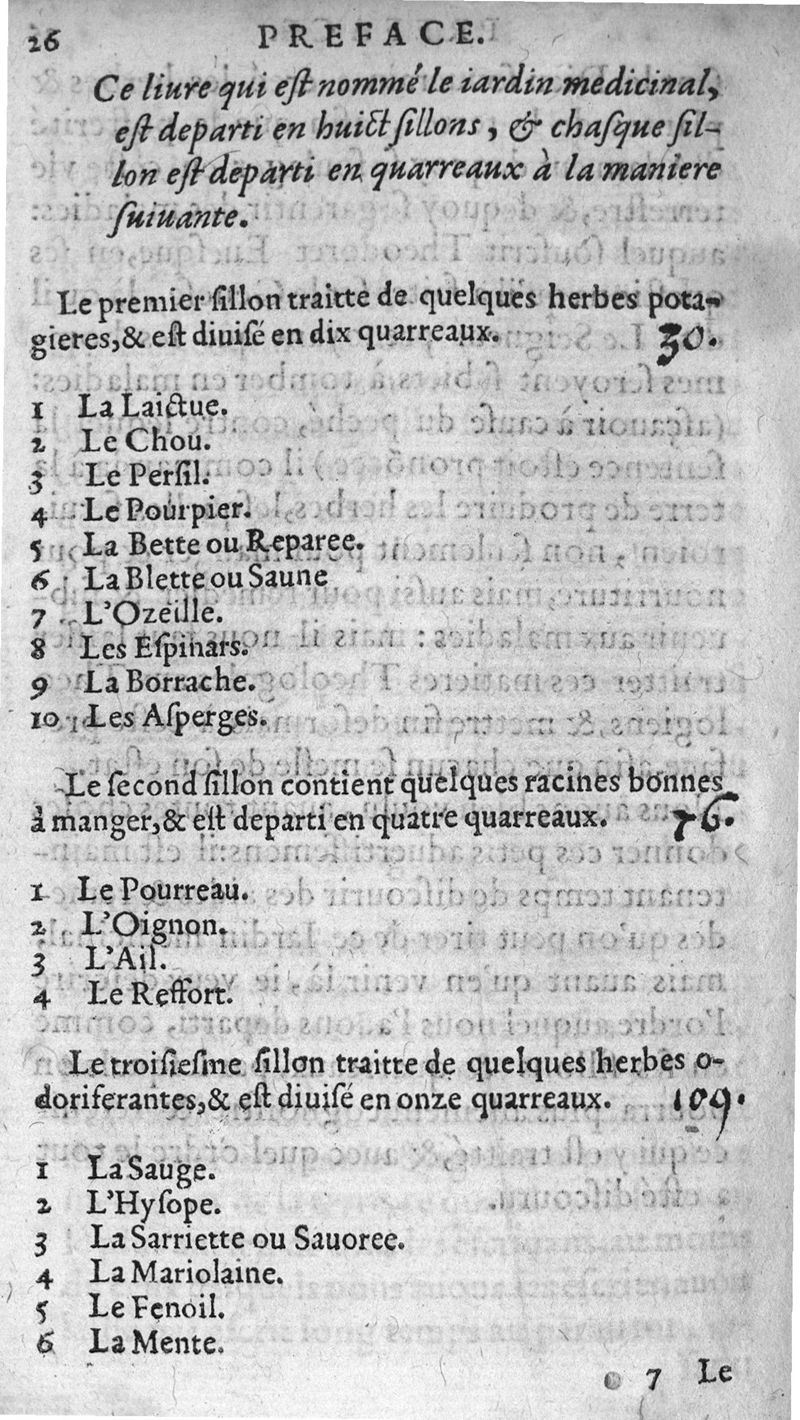 26 PREFACE.
Ce liure qui eſt nommé le iardin medicinal,
eſt departi en huict ſillons, & chaſque ſil-
lon eſt departi en quarreaux à la maniere
ſuiuante.
Le premier ſillon traitte de quelques herbes pota-
gieres, & eſt diuiſé en dix quarreaux. 30.
1 La Laictue.
2 Le Chou.
3 Le Perſil.
4 Le Pourpier.
5 La Bette ou Reparee.
6 La Blette ou Saune
7 L'Ozeille.
8 Les Eſpinars.
9 La Borrache.
10 Les Aſperges.
Le ſecond ſillon contient quelques racines bonnes
à manger, & eſt departi en quatre quarreaux. 76.
1 Le Pourreau.
2 L'Oignon.
3 L'Ail.
4 Le Reffort.
Le troiſieſme ſillon traitte de quelques herbes o-
doriferantes, & eſt diuiſé en onze quarreaux. 109.
1 La Sauge.
2 L'Hyſope.
3 La Sarriette ou Sauoree.
4 La Mariolaine.
5 Le Fenoil.
6 La Mente.
7 Le